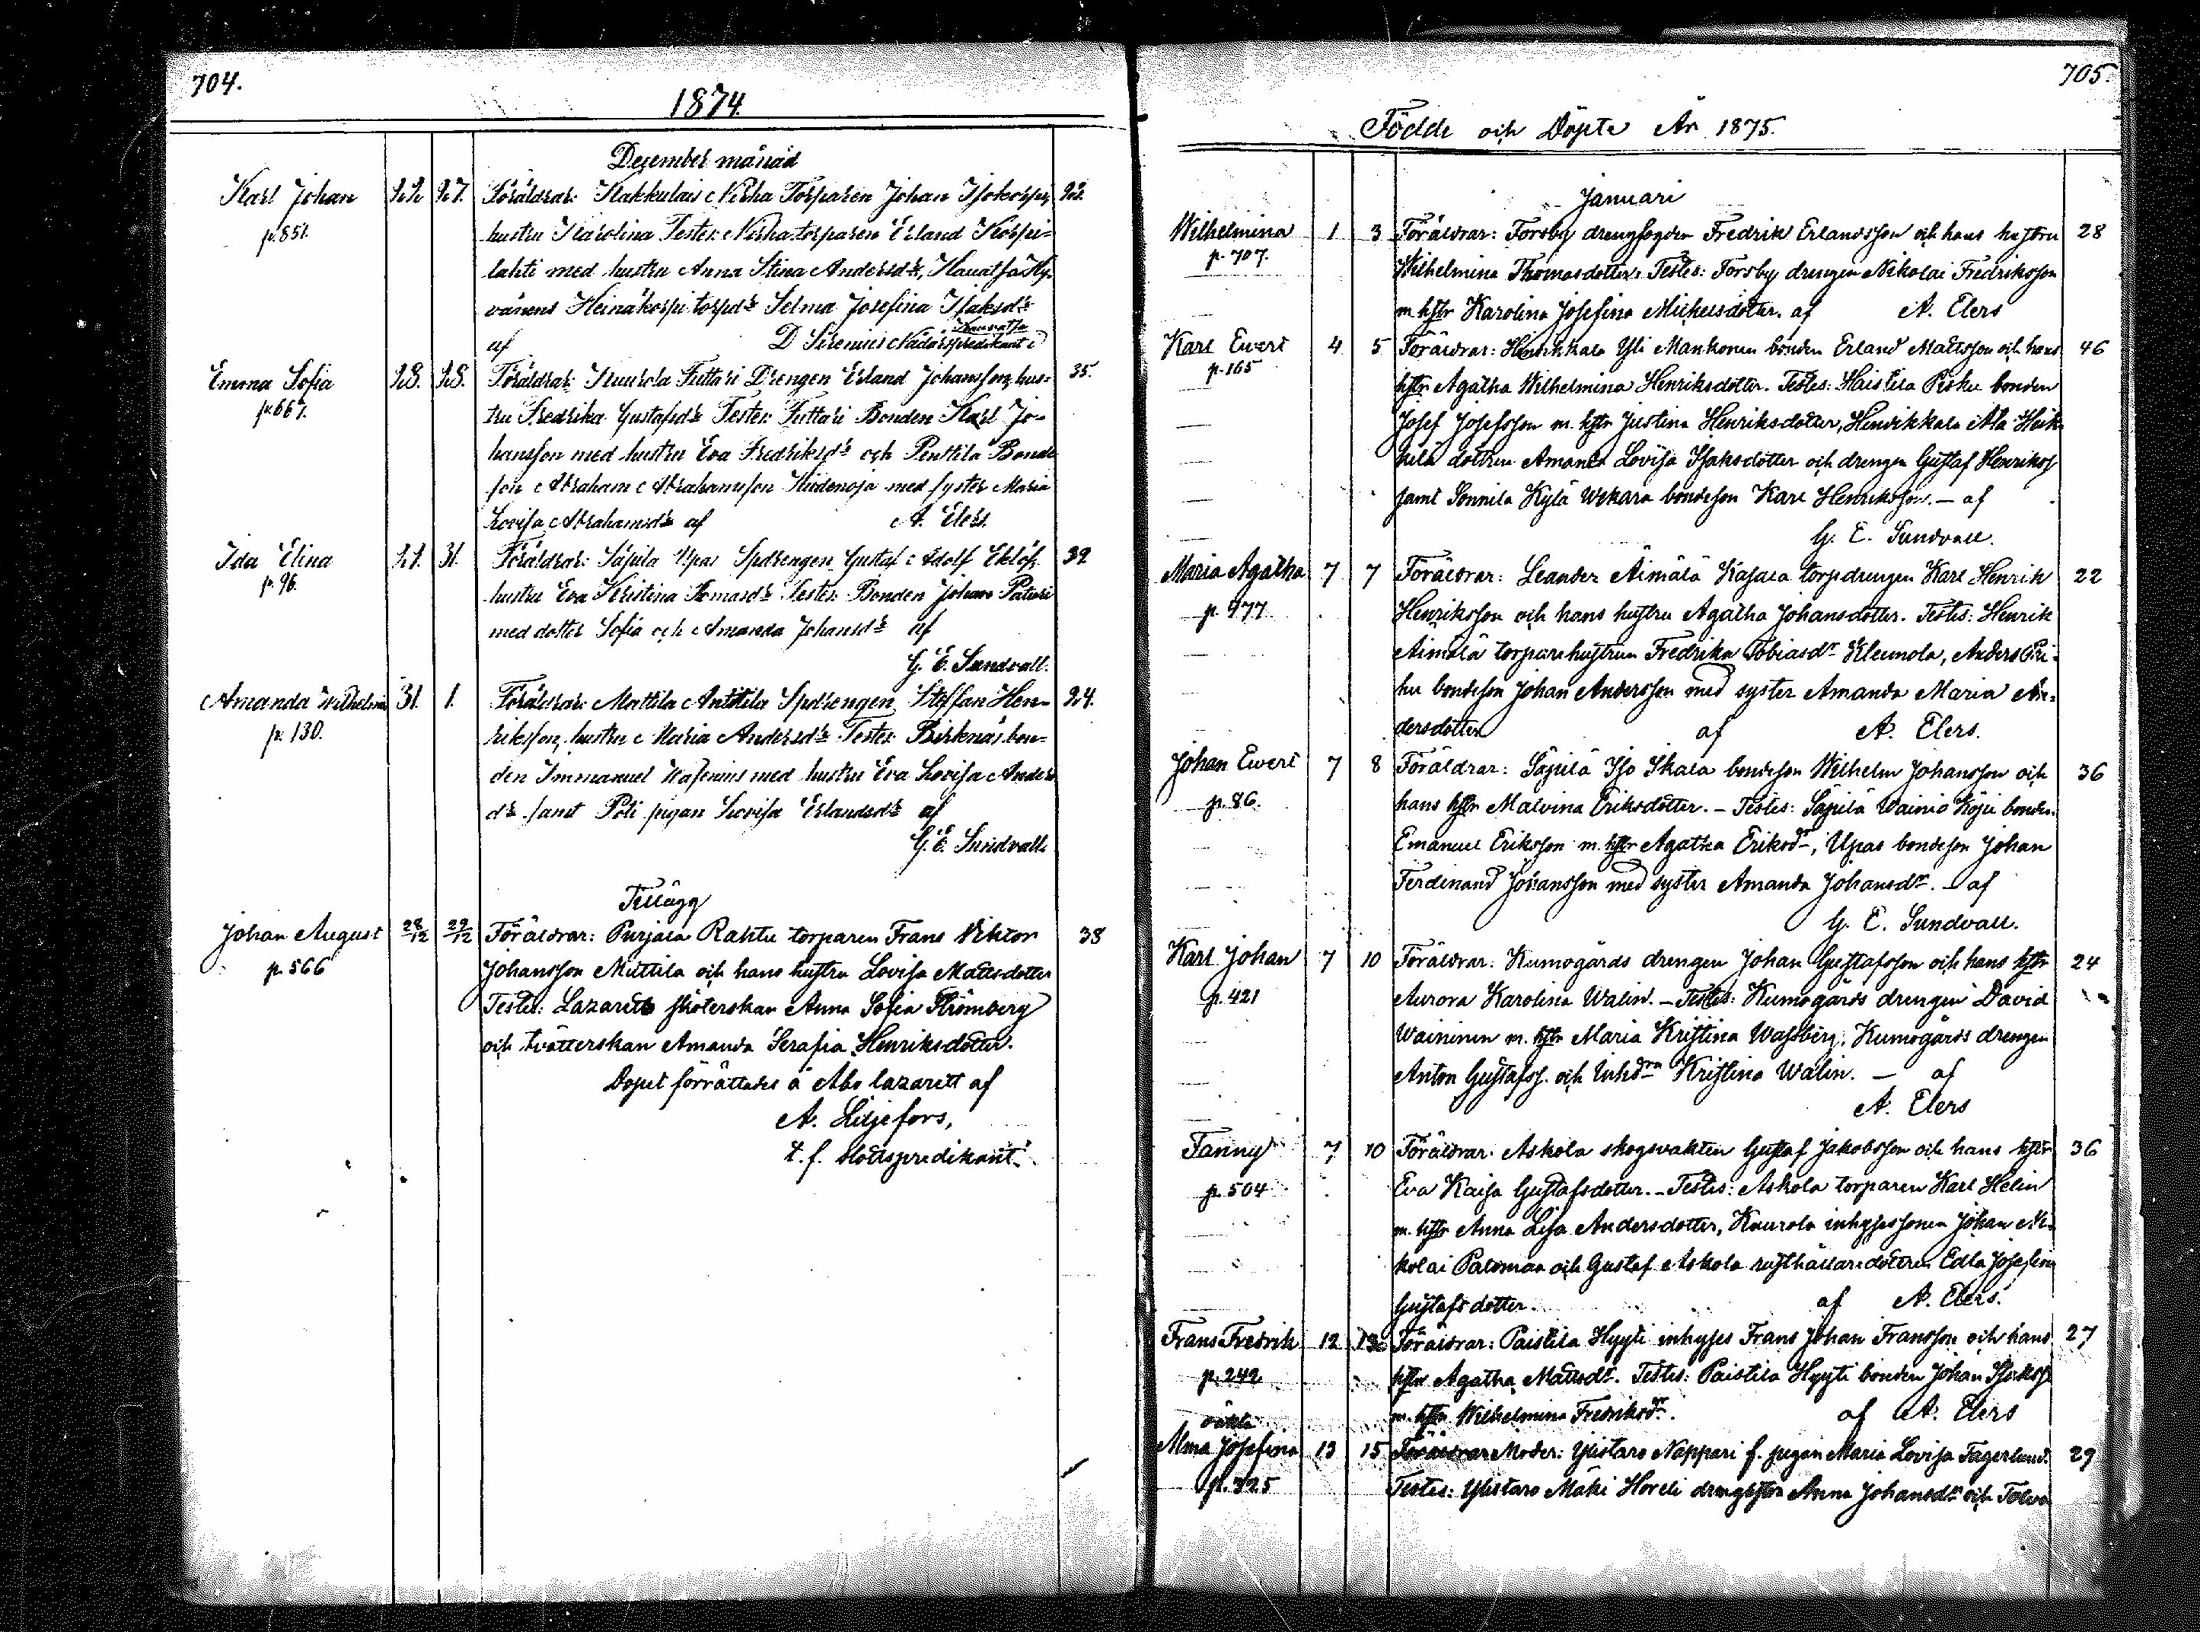 704.
1874.
December månad
Karl Johan 22 27. Föräldrar: Kakkulais Nirha Torparen Johan Isokorpi, 22.
p. 851. hustru Karolina Testes: Nirha torparen Erland Korpi-
lahti med hustru Anna Stina Andersd:r, Kauatsa Hy-
vänens Heinäkorpi torpd:r Selma Josefina Isaksd:r
af D Sirenius Nådårspredikant i Kauvatsa
Emma Sofia 28. 28. Föräldrar: Knurola Futtari Drengen Erland Johansson, hus- 35.
p. 667. tru Fredrika Gustafsd:r Testes: Futtari Bonden Karl Jo-
hansson med hustru Eva Fredriksd:r och Penttila Bonde
son Abraham Abrahamsson Hiidenoja med syster Maria
Lovisa Abrahamsd:r af A. Elers.
Ida Elina 21. 31. Föräldrar: Säpilä Upas Spdrengen Gustaf Adolf Eklöf, 32
p. 96. hustru Eva Kristina Tomasd:r Testes: Bonden Johan Paturi
med dotter Sofia och Amanda Johansd:r af
G. E. Sundvall.
Amanda Wilhelmina 31. 1. Föräldrar: Mattila Anttila Spdrengen Steffan Hen- 24.
p. 130. riksson, hustru Maria Andersd:r Testes: Birknäs bon-
den Immanuel Wasenius med hustru Eva Lovisa Anders
d:r samt Poli pigan Lovisa Erlandsd:r af
G. E. Sundvall.
Tillägg
Johan August 28/12 29/12 Föräldrar: Purjala Rahtu torparen Frans Viktor 38
p. 566 Johansson Muttila och hans hustru Lovisa Mattsdotter
Testes: Lazaretts sköterskan Anna Sofia Strömberg
och tvätterskan Amanda Serafia Henriksdotter.
Dopet förrättades å Åbo lazarett af
A. Liljefors,
t. f. slottspredikant.
705.
Födde och Döpte År 1875.
Januari
Wilhelmina 1 3 Föräldrar: Forsby drengfogden Fredrik Erlandsson och hans hustru 28
p. 707. Wilhelmina Thomasdotter. Testes: Forsby drengen Nikolai Fredriksson
m. hstr Karolina Josefina Michelsdotter. af A. Elers
Karl Evert 4 5 Föräldrar: Henrikkala Yli Mankonen bonden Erland Mattsson och hans 46
p. 165 hstr Agatha Wilhelmina Henriksdotter. Testes: Haistila Pirhu bonden
Josef Josefsson m. hstr Justina Henriksdotter, Henrikkala Ala Heik
kilä dottren Amanda Lovisa Isaksdotter och drengen Gustaf Henrikss
samt Sonnila Kylä Wekara bondeson Karl Henriksson. — af
G. E. Sundvall.
Maria Agatha 7 7 Föräldrar: Leander Äimälä Kasala torpdrengen Karl Henrik 22
p. 477 Henriksson och hans hustru Agatha Johansdotter. Testes: Henrik
Äimälä torparehustrun Fredrika Tobiasd:r Kleemola, Anders Pri-
hu bondeson Johan Andersson med syster Amanda Maria An-
dersdotter af A. Elers.
Johan Evert 7 8 Föräldrar: Säpilä Iso Skala bondeson Wilhelm Johansson och 36
p. 86. hans hstr Malvina Eriksdotter. — Testes: Säpilä Wainio Köjii bonden
Emanuel Eriksson m. hstr Agatha Eriksd:r, Upas bondeson Johan
Ferdinand Johansson med syster Amanda Johansd:r. — af
G. E. Sundvall.
Karl Johan 7 10 Föräldrar: Kumogårds drengen Johan Gustafsson och hans hstr 24
p. 421 Aurora Karolina Walin. — Testes: Kumogårds drengen David
Waininen m. hstr Maria Kristina Wassberg, Kumogårds drengen
Anton Gustafss. och Kristina Walin. — af
A. Elers
Fanny 7 10 Föräldrar: Askola skogsvakten Gustaf Jakobsson och hans hstr 36
p. 504 Eva Kaisa Gustafsdotter. — Testes: Askola torparen Karl Helin
m. hstr Anna Lisa Andersdotter, Knurola inhysessonen Johan Ni-
kolai Paloman och Gustaf Askola rusthållaredottren Edla Josefina
Gustafsdotter. af A. Elers.
Frans Fredrik 12 13 Föräldrar: Paistila Hyyti inhyses Frans Johan Fransson och hans 27
p. 242 hstr Agatha Mattsd:r. Testes: Paistila Hyyti bonden Johan Isakss
m. hstr Wilhelmina Fredriksd:r. af A. Elers
oäkta
Alma Josefina 13 15 Föräldrar Moder: Ylistaro Nappari f. pigan Maria Lovisa Fagerlund. 29
p. 325 Testes: Ylistaro Mäki Horeli drenghstrn Anna Johansd:r och Tolva